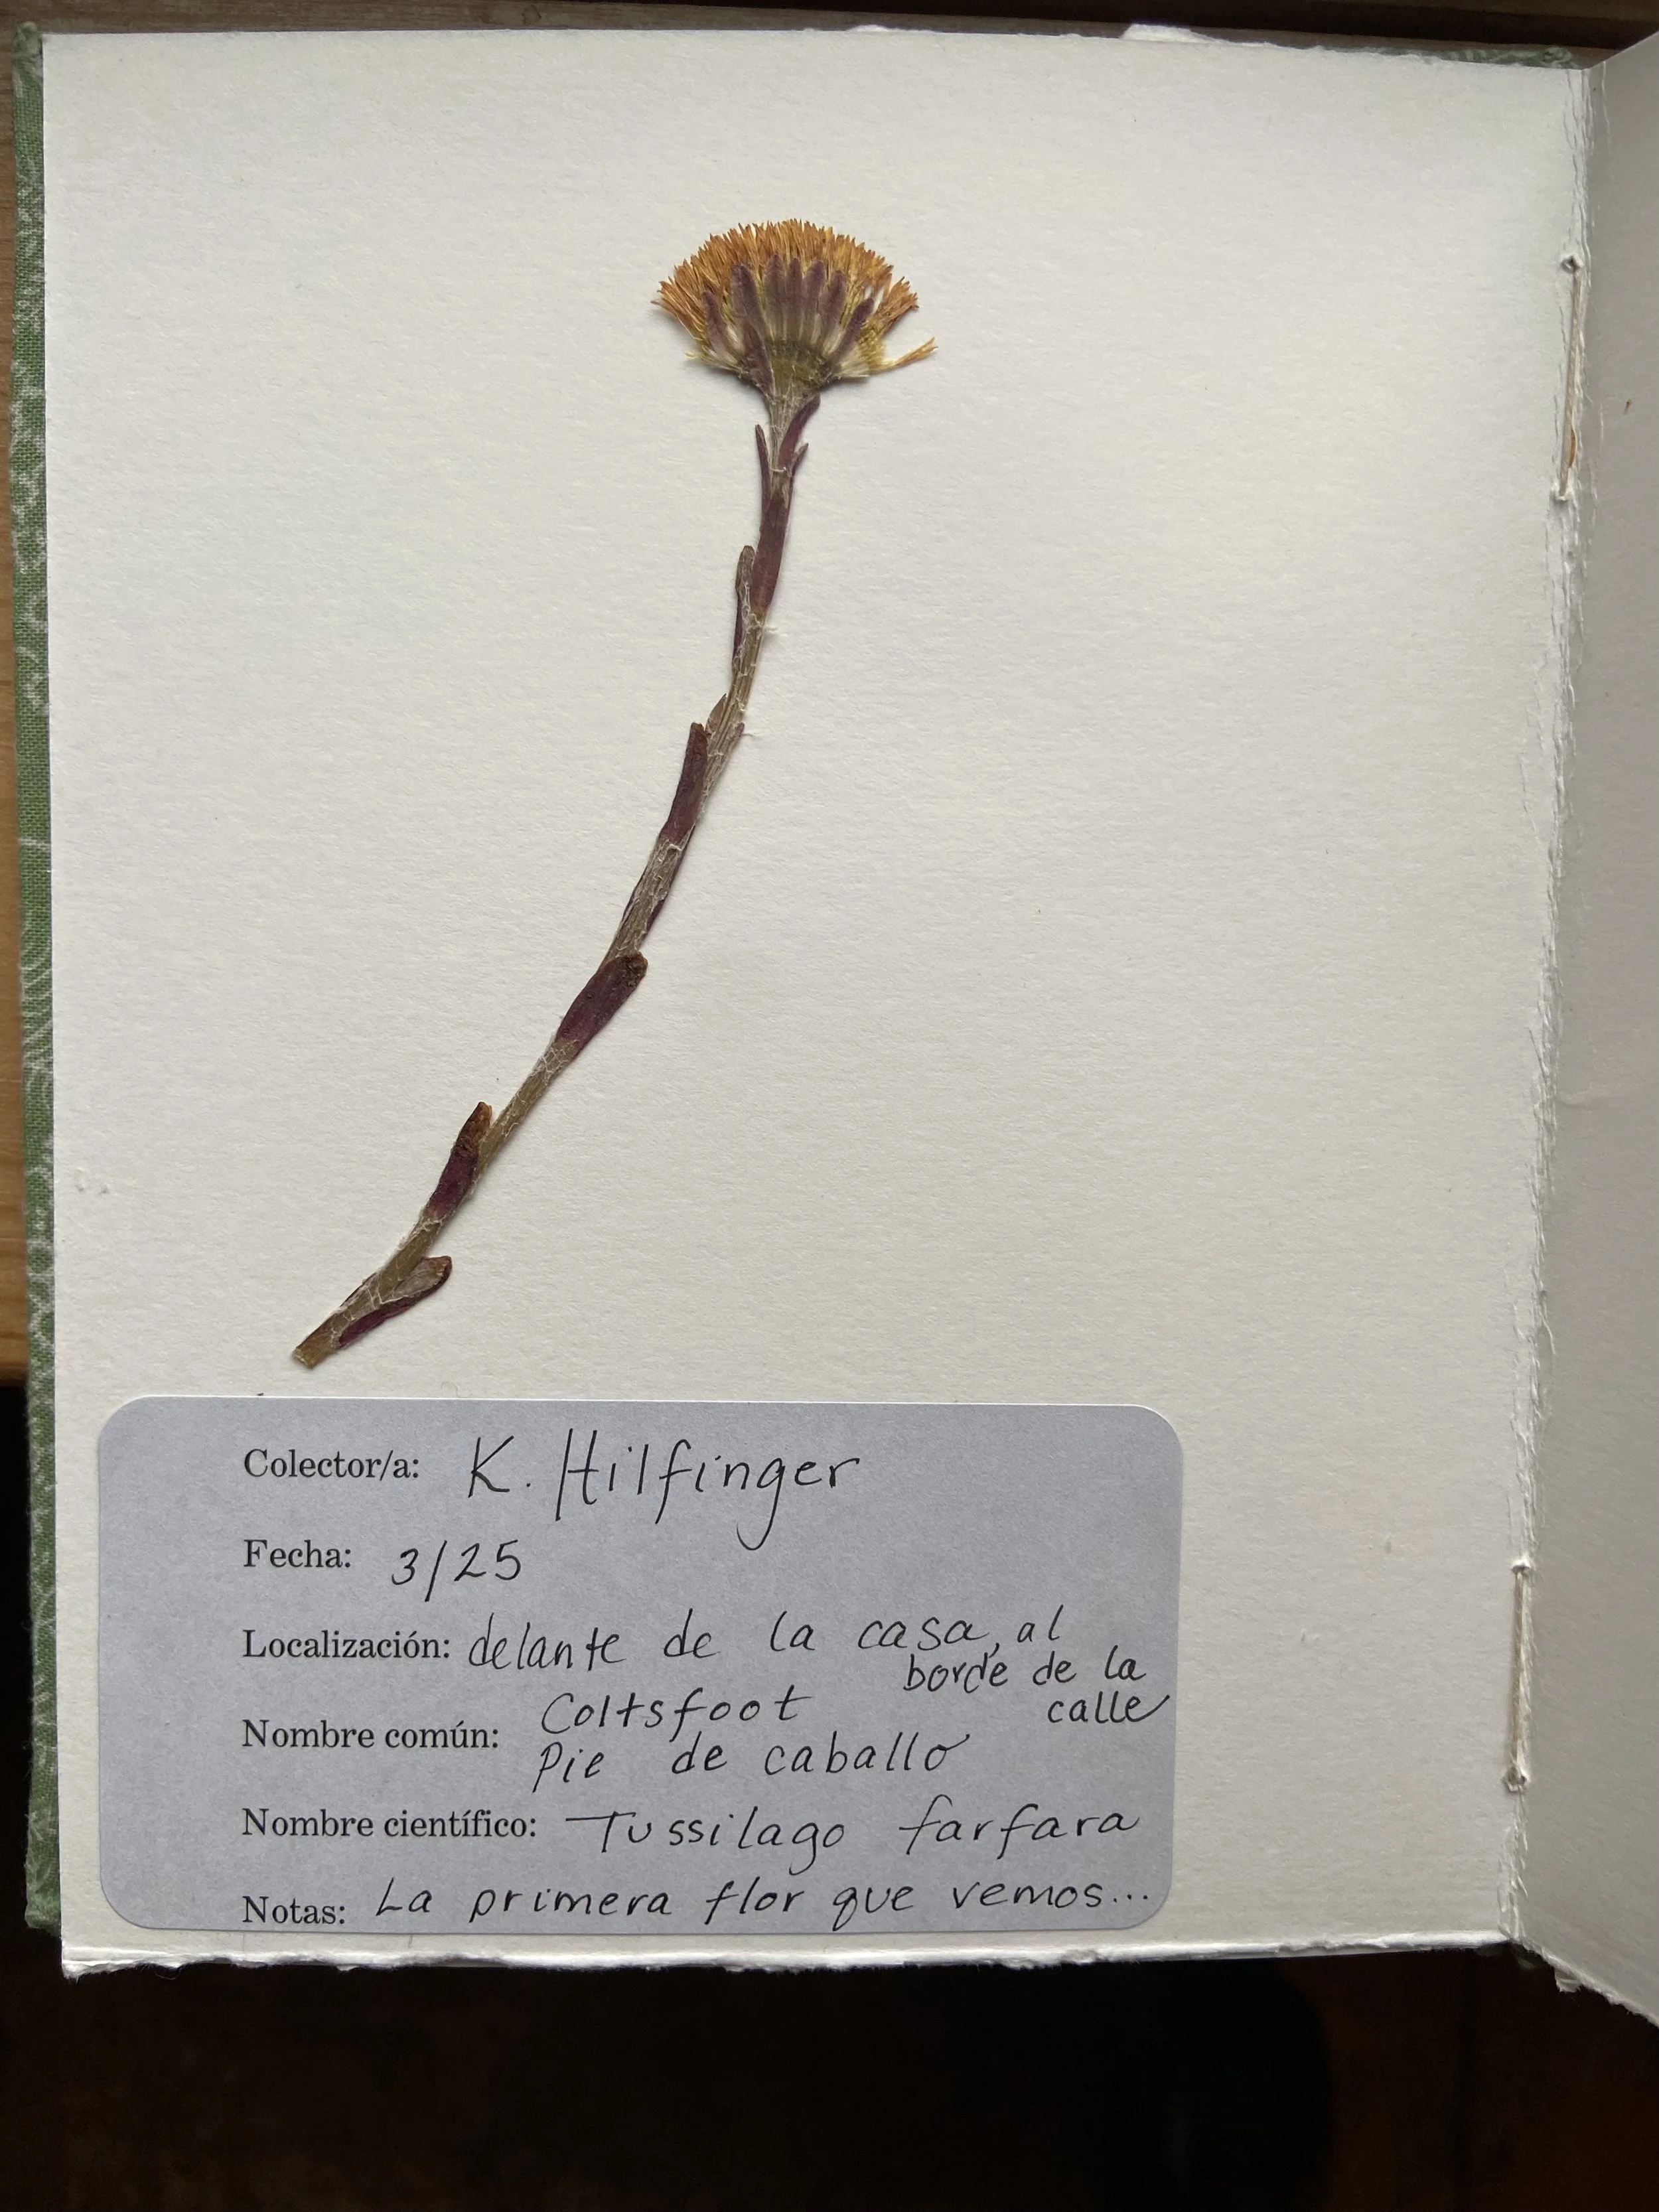 Colector/a: K. Hilfinger
Fecha: 3/25
Localización: delante de la casa, al
borde de la
calle
Nombre común: Coltsfoot
Pie de caballo
Nombre científico: Tussilago farfara
Notas: La primera flor que vemos...